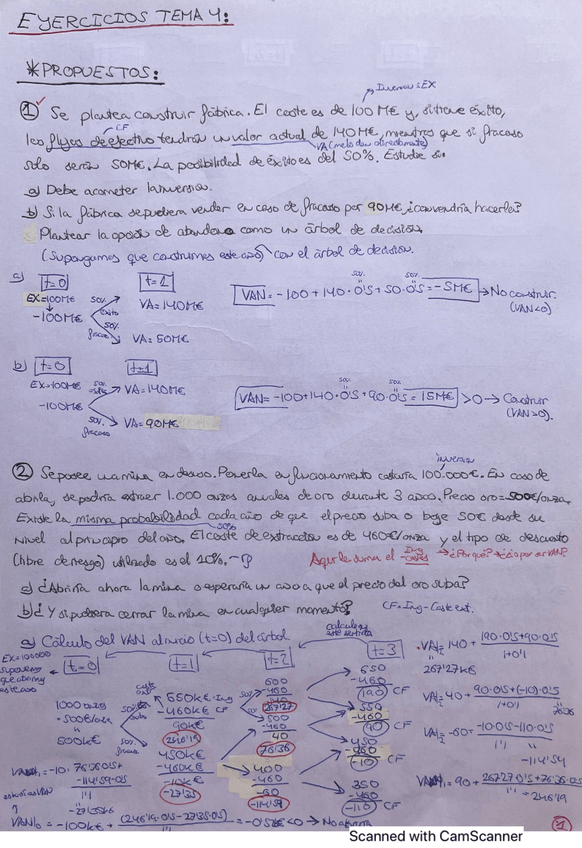 EJERCICIOS TEMA 4:
*PROPUESTOS:
Inversión = EX
① Se plantea construir fábrica. El coste es de 100 M€ y, si tiene éxito,
CF
los flujos de efectivo tendrán un valor actual de 140M€, mientras que si fracasa
VA (me lo dan directamente)
solo serán 50M€. La posibilidad de éxito es del 50%. Estudie si:
a) Debe acometer la inversión.
b) Si la fábrica se pudiera vender en caso de fracaso por 90M€, ¿convendría hacerla?
Plantear la opción de abandono como un árbol de decisión.
(Supongamos que construimos este año) con el árbol de decisión.
a) t=0 t=1
EX=100M€ 50% VA=140M€
-100M€ éxito
50% fracaso VA=50M€
50% 50%
VAN=-100+140·0'5+50·0'5=-5M€ → No construir.
(VAN<0)
b) t=0 t=1
EX=100M€ 50% VA=140M€
-100M€
50% fracaso VA=90M€
50% 50%
VAN=-100+140·0'5+90·0'5=15M€ >0 → Construir
(VAN>0).
inversión
② Se posee una mina en desuso. Ponerla en funcionamiento costaría 100.000€. En caso de
abrirla, se podría extraer 1.000 onzas anuales de oro durante 3 años. Precio oro=500€/onza.
Existe la misma probabilidad cada año de que el precio suba o baje 50€ desde su
50%
nivel al principio del año. El coste de extracción es de 460€/onza y el tipo de descuento
(libre de riesgo) utilizado es el 10%.
Aquí le suma el Ing-costes → ¿Por qué?
a) ¿Abriría ahora la mina o esperaría un año a que el precio del oro suba?
b) ¿Y si pudiera cerrar la mina en cualquier momento? CF=Ing-Coste ext.
a) Cálculo del VAN al inicio (t=0) del árbol
EX=100000 t=0 t=1 t=2 t=3
1000 onzas
·500€/onza
500k€
550k€ Ing
-460k€ CF
90k€
246'19
450k€
-460k€
-10k€
-27'35
600
-460
140
267'27
500
-460
40
76'36
400
-460
-60
-114'54
650
-460
190 CF
550
-460
90 CF
450
-460
-10 CF
350
-460
-110 CF
VA=140+ 190·0'5+90·0'5
1+0'1
267'27k€
VA=40+ 90·0'5+(-10)·0'5
1+0'1
76'36
VA=-60+ -10·0'5-110·0'5
1'1
-114'54
VA=90+ 267'27·0'5+76'36·0'5
1'1
=246'19
VA=-10+ 76'36·0'5+
-114'54·0'5
1'1
-27'35k€
VAN₀=-100k€+ (246'19·0'5-27'35·0'5)
1'1
=-0'5k€<0 → No abriría
1
Scanned with CamScanner